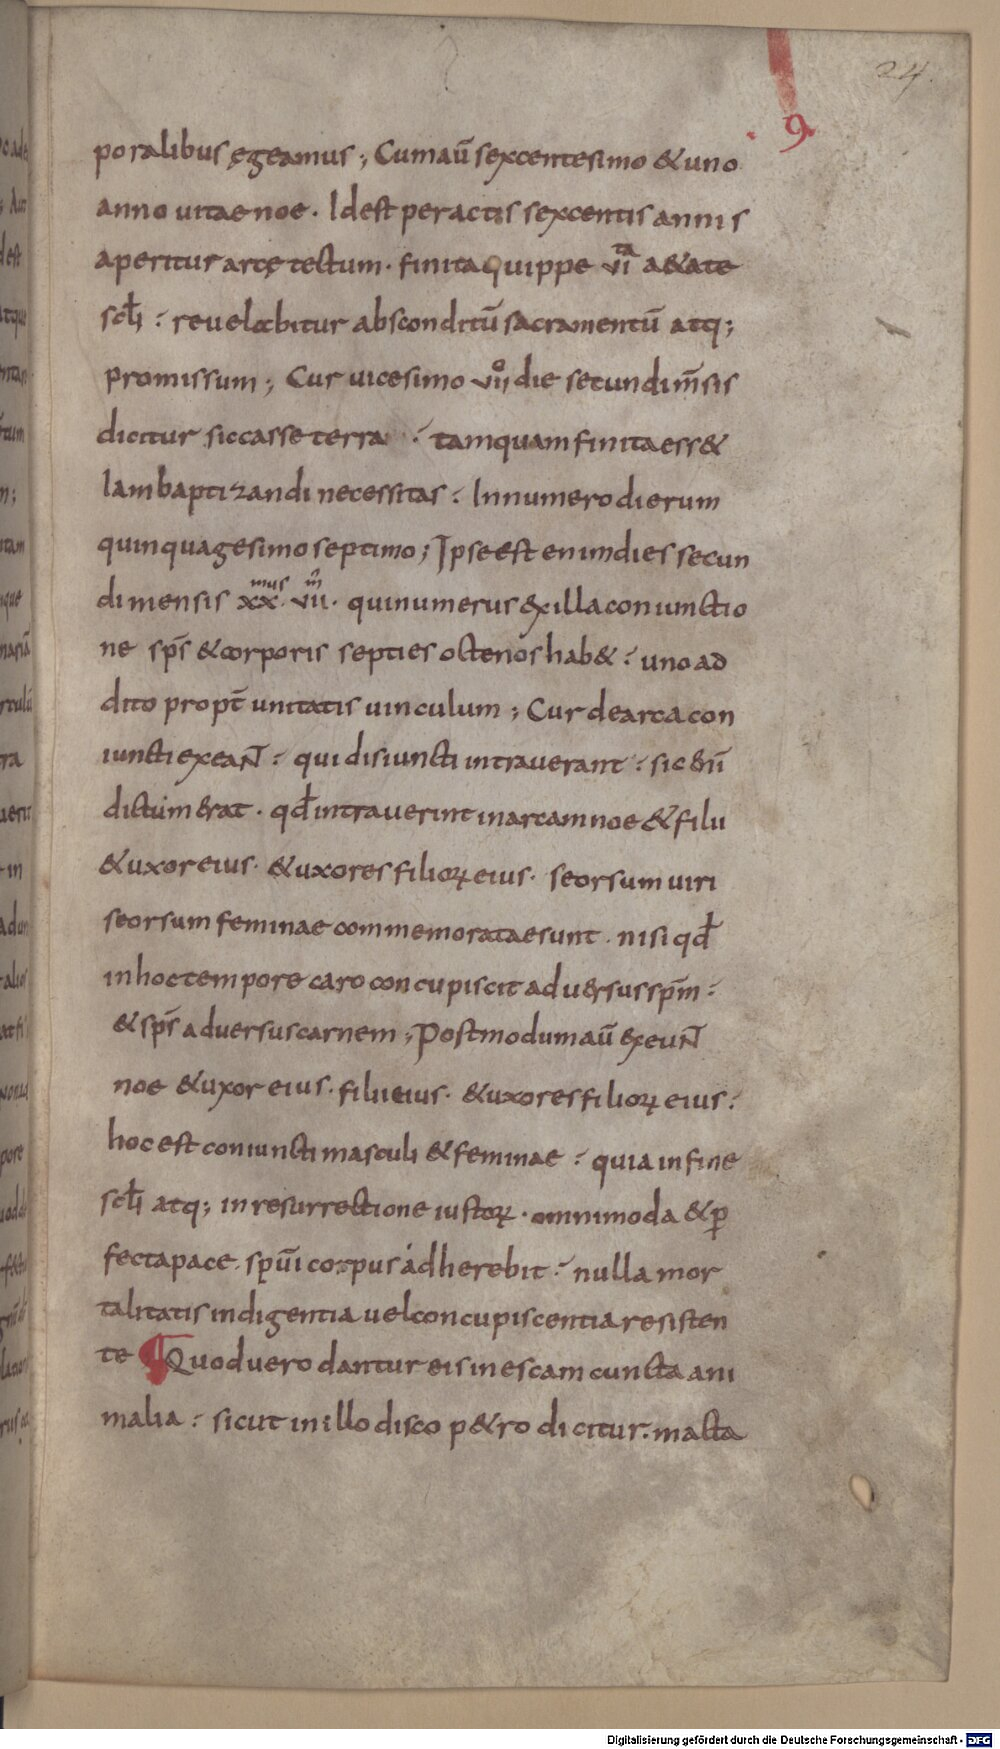 24.
.9.
poralibus ęgeamus ; Cum aū sexcentesimo & uno
anno uitae noe . Idest peractis sexcentis annis
aperitur arcę tectum . finita quippe vi ta a&ate
sc̄li : reuelabitur absconditū sacramentū atq;
promissum ; Cur uicesimo vii o die secundi m̄sis
dicitur siccasse terra : tamquam finita ess&
Iam baptizandi necessitas : In numero dierum
quinquagesimo septimo ; Ipse est enim dies secun
di mensis xx mus . vii m . qui numerus ex illa coniunctio
ne sp̄s & corporis septies octenos hab& : uno ad
dito propt̄ unitatis uinculum ; Cur de arca con
iuncti exeaN̄ : qui disiuncti intrauerant : sic enī
dictum erat . qđ intrauerint in arcam noe & filii
& uxor eius . & uxores filioꝝ eius . seorsum uiri
seorsum feminae commemoratae sunt . nisi qđ
in hoc tempore caro concupiscit aduersus sp̄m :
& sp̄s aduersus carnem ; Postmodum aū exeuN̄
noe & uxor eius . filii eius . & uxores filioꝝ eius :
hoc est coniuncti masculi & feminae : quia in fine
sc̄li atq; in resurrectione iustoꝝ . omnimoda & ꝑ
fecta pace . spūi corpus adherebit : nulla mor
talitatis indigentia uel concupiscentia resisten
te ¶ Quod uero dantur eis in escam cuncta ani
malia : sicut in illo disco p&ro dicitur . macta
Digitalisierung gefördert durch die Deutsche Forschungsgemeinschaft - DFG